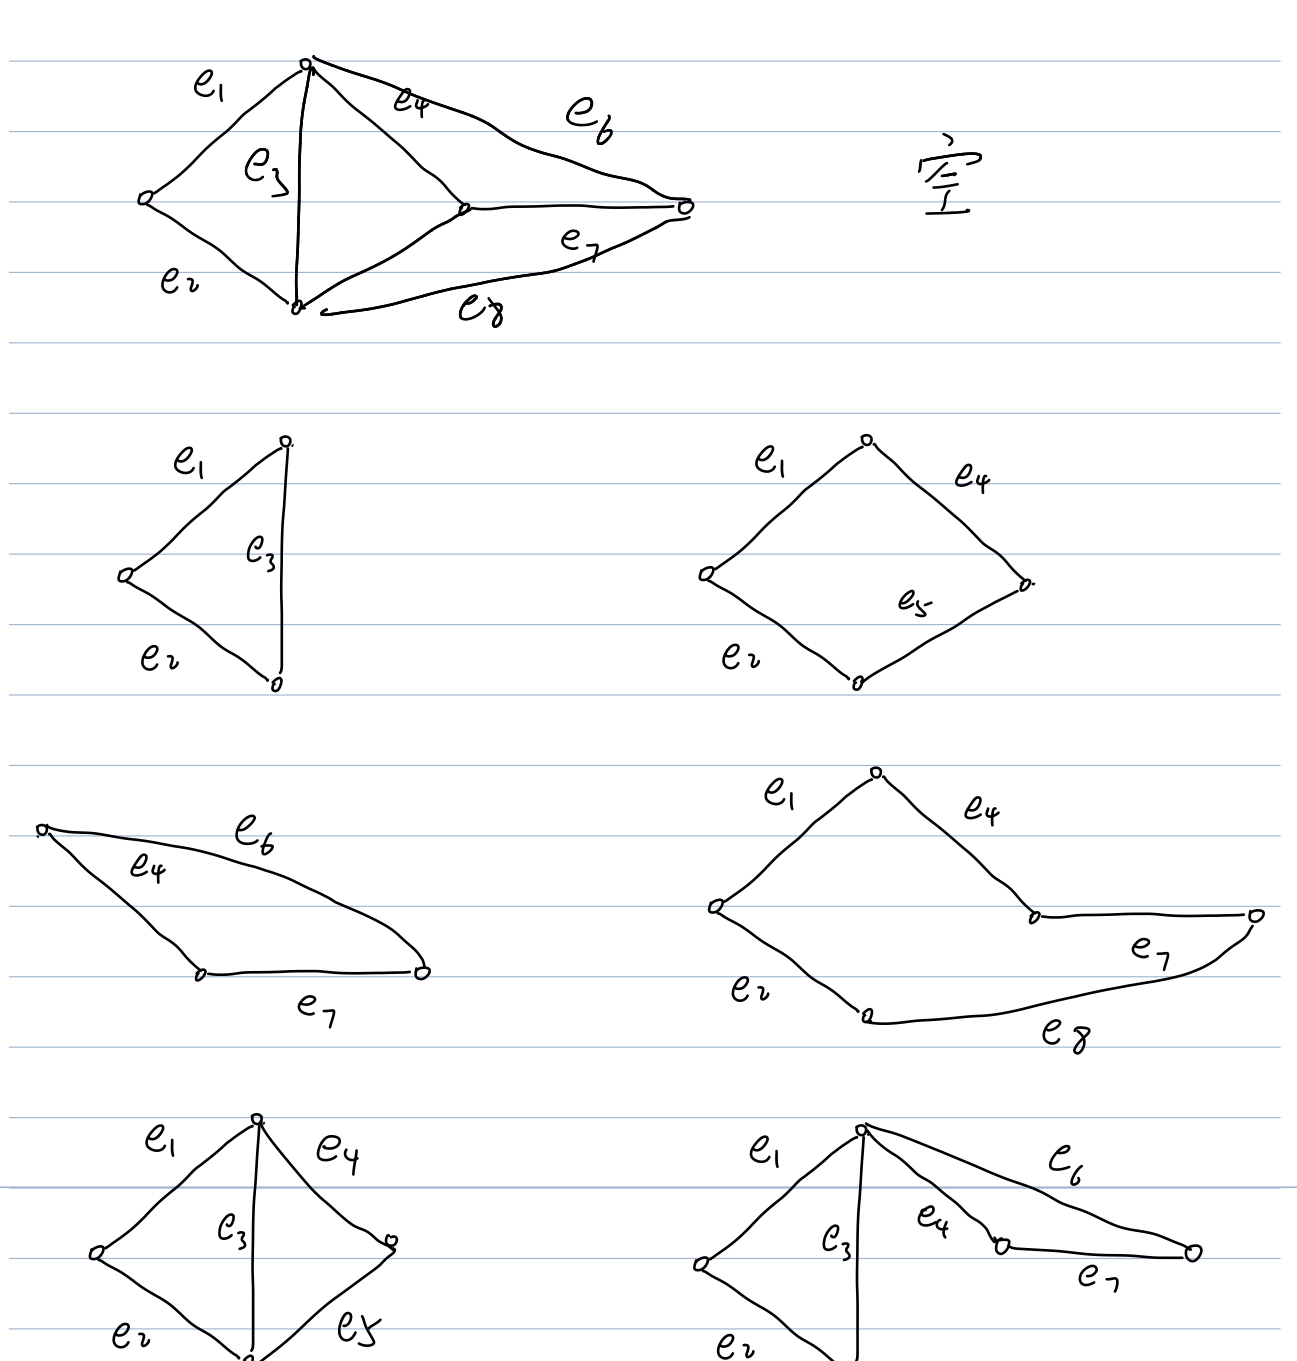 e1 e4 e6
e3
e2 e7
e8
e1 e3 e2
e1 e4 e5 e2
e6 e4 e7
e1 e4 e7 e2 e8
e1 e4 e3 e2 e5
e1 e6 e4 e3 e7 e2